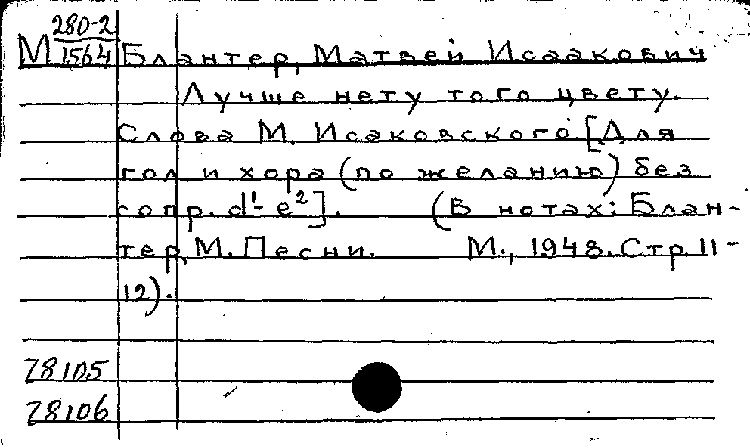 280-2
М 1564 Блантер, Матвей Исаакович
Лучше нету того цвету.
Слова М. Исаковского [Для
гол и хора (по желанию) без
сопр. d¹- e²]. (В нотах: Блан-
тер, М. Песни. М., 1948. Стр. 11-
12).
78105
78106